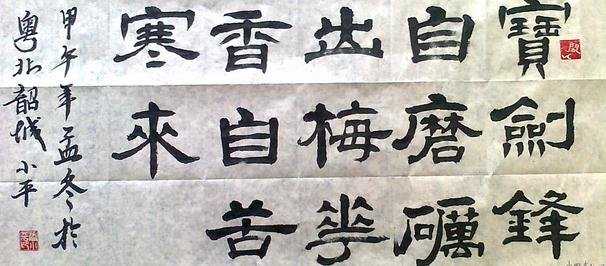 寶劍鋒
自磨礪
出梅華
香自苦
寒來
甲午年孟冬於
粵北韶城 小平